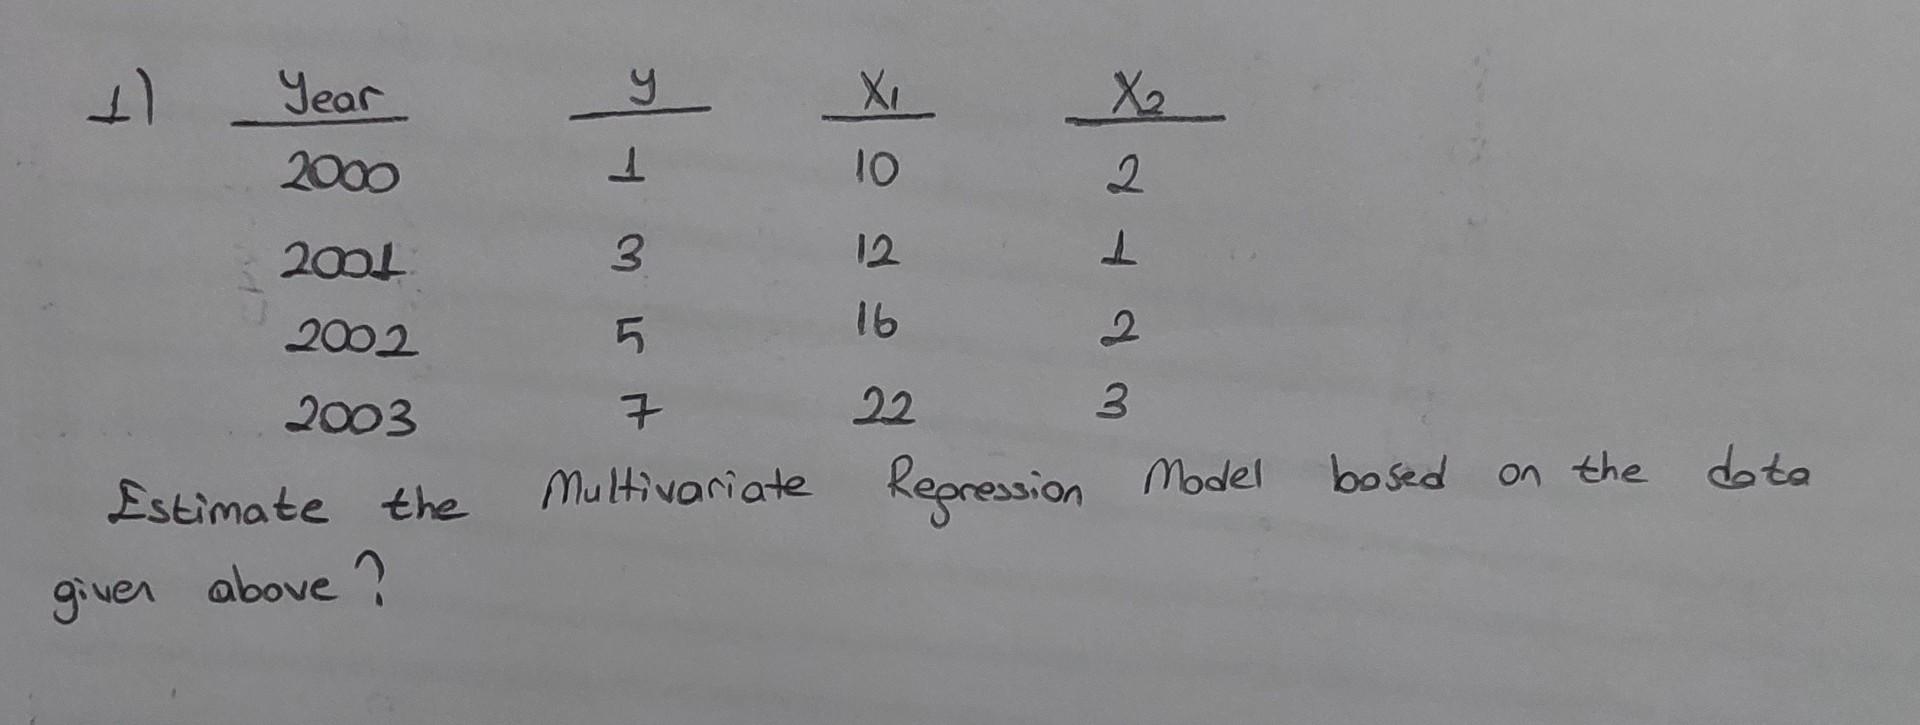 1) Year y X1 X2
2000 1 10 2
2001 3 12 1
2002 5 16 2
2003 7 22 3
Estimate the Multivariate Regression Model based on the data
given above?